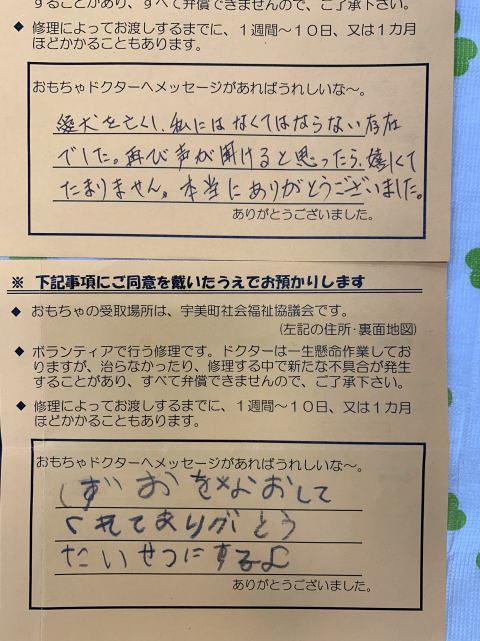 することがあり、すべて弁償できませんので、ご了承下さい。
◆ 修理によってお渡しするまでに、１週間～１０日、又は１カ月
ほどかかることもあります。
おもちゃドクターへメッセージがあればうれしいな～。
愛犬を亡くし、私にはなくてはならない存在
でした。再び声が聞けると思ったら、嬉しくて
たまりません。本当にありがとうございました。
ありがとうございました。
※ 下記事項にご同意を戴いたうえでお預かりします
◆ おもちゃの受取場所は、宇美町社会福祉協議会です。
(左記の住所・裏面地図)
◆ ボランティアで行う修理です。ドクターは一生懸命作業してお
りますが、治らなかったり、修理する中で新たな不具合が発生
することがあり、すべて弁償できませんので、ご了承下さい。
◆ 修理によってお渡しするまでに、１週間～１０日、又は１カ月
ほどかかることもあります。
おもちゃドクターへメッセージがあればうれしいな～。
しずおをなおして
くれてありがとう
たいせつにするよ
ありがとうございました。